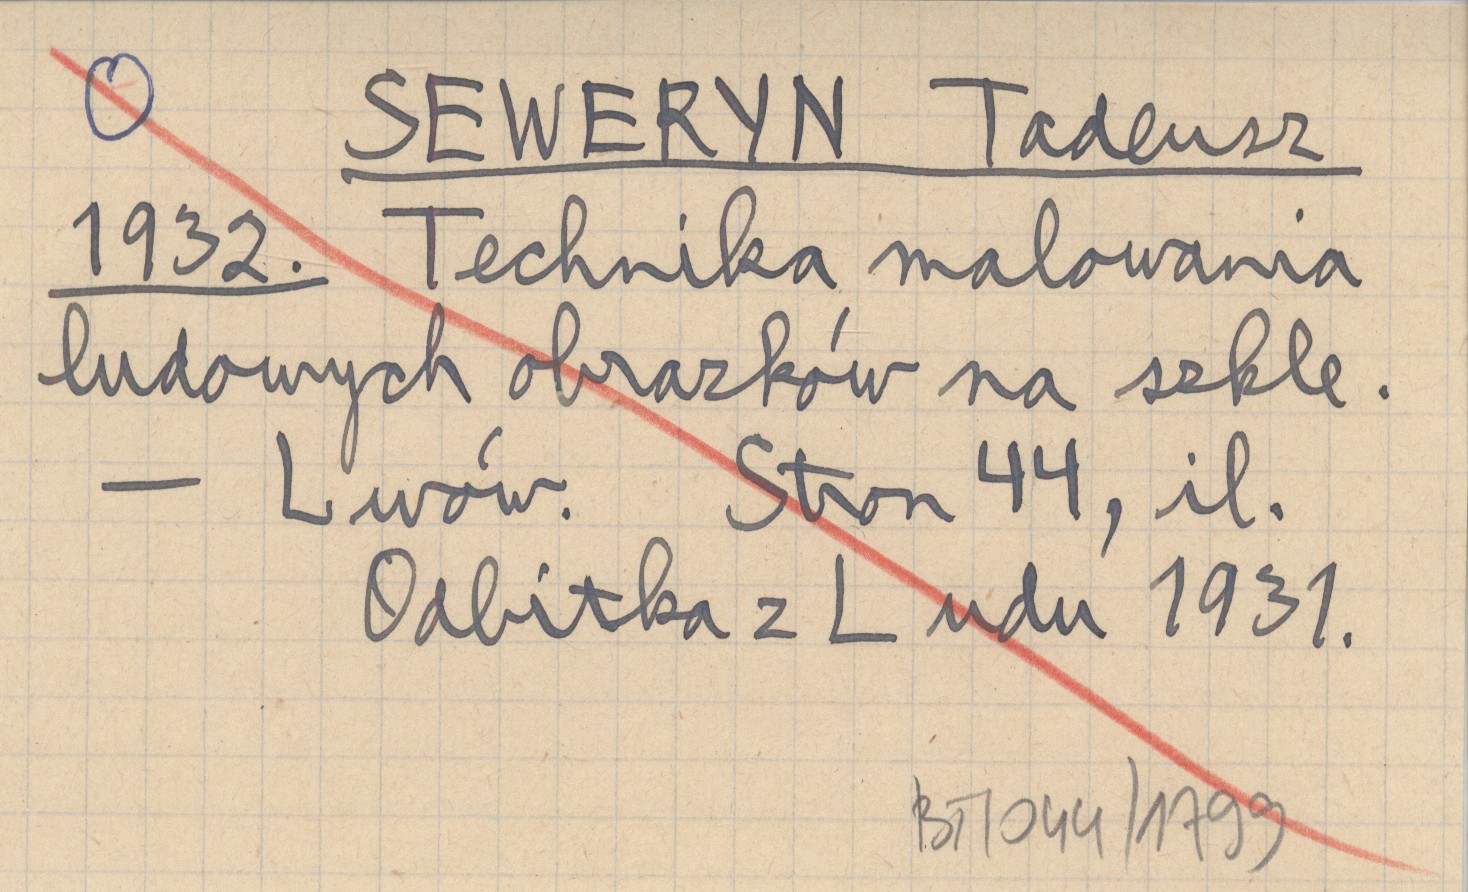 SEWERYN Tadeusz
1932. Technika malowania
ludowych obrazków na szkle.
— Lwów. Stron 44, il.
Odbitka z Ludu 1931.
BT1044/1799